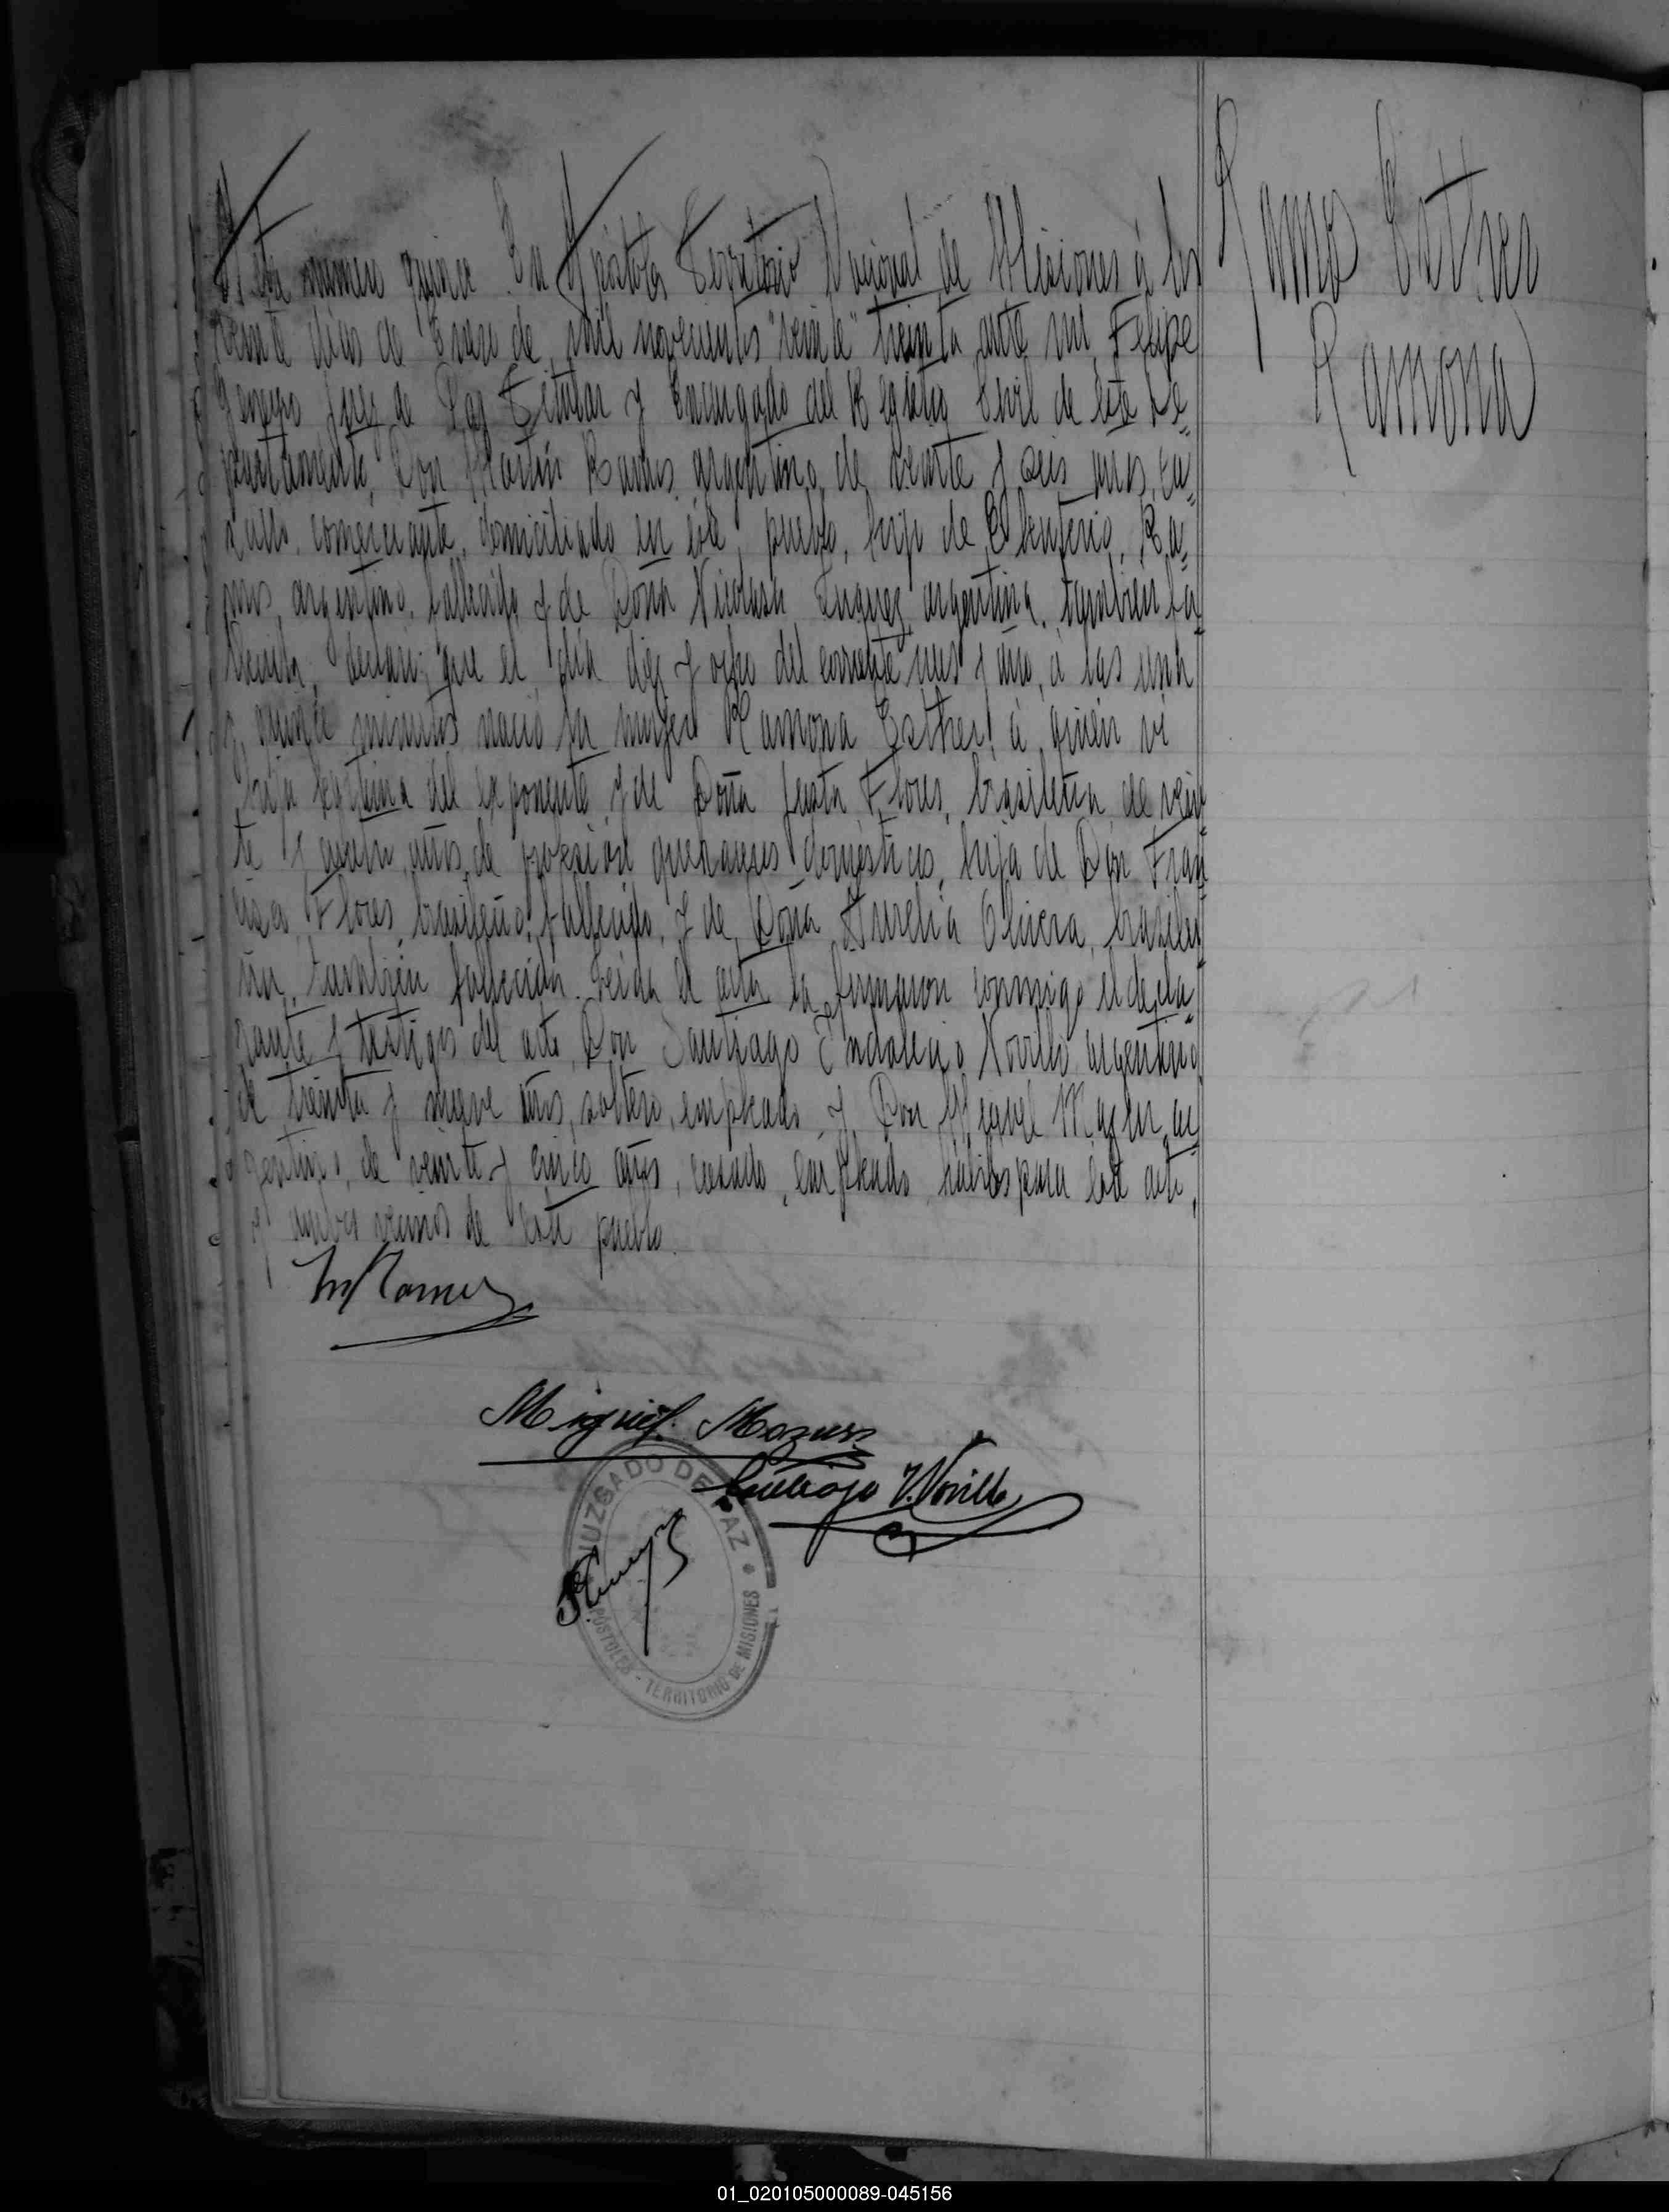 Acta número quince. En Apóstoles Territorio Nacional de Misiones á los
veinte días de Enero de mil novecientos "veinte" treinta ante mi, Felipe
Juez de Paz Titular y Encargado del Registro Civil de este De=
partamento, Don Martín Ramos, argentino, de veinte y seis años, ca=
sado, comerciante, domiciliado en éste pueblo, hijo de Eleuterio Ra=
mos, argentino, fallecido y de Doña Nicolasa argentina, también fa
llecida, declaró: que el día diez y ocho del corriente mes y año, á las una
y quince minutos nació la mujer Ramona Esther, á quien vi
hija legítima del exponente y de Doña Justa Flores, brasileña, de vein
te y años, de profesión quehaceres domésticos, hija de Don Fran
cisco Flores, brasileño, fallecido, y de Doña Aurelia Olivera, brasile
ña, también fallecida. Leida el acta la firmaron conmigo el decla=
rante y testigos del acto, Don Santiago Indalecio Novillo, argentino
de treinta y nueve años, soltero, empleado y Don Miguel Mazur, ar
gentino, de veinte y cinco años, casado, empleado, habiles para este acto,
y ambos vecinos de este pueblo.
M Ramos
Miguel Mazur
Santiago I. Novillo
JUZGADO DE PAZ
APÓSTOLES - TERRITORIO DE MISIONES
Ramos Esther
Ramona
01_020105000089-045156